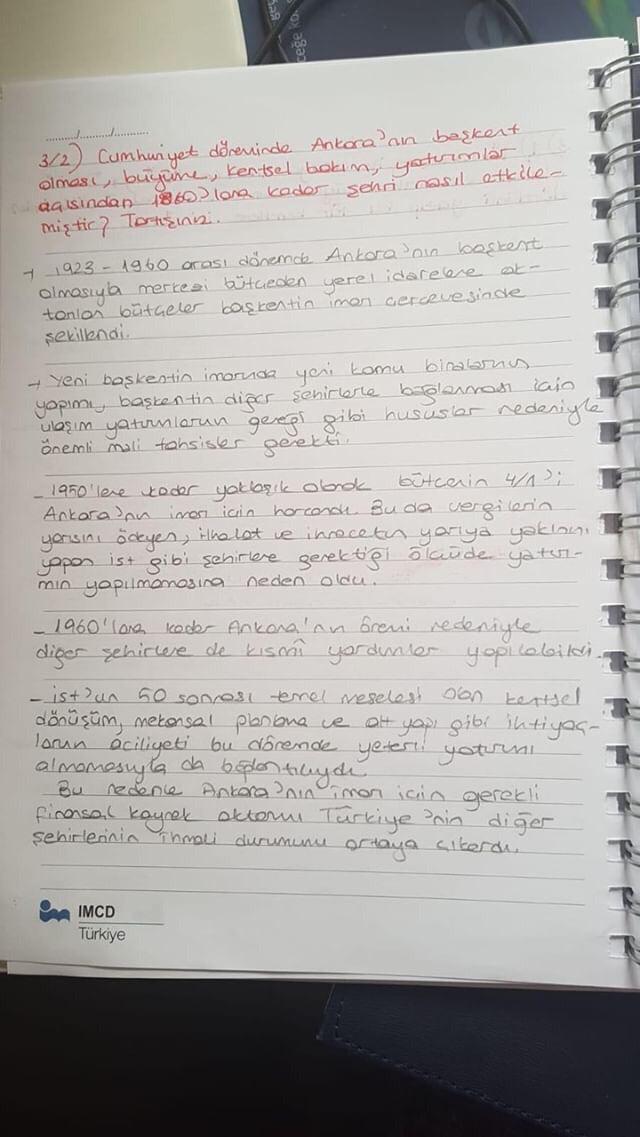 ceğe ko
...../...../..........
3/2) Cumhuriyet döneminde Ankara'nın başkent
olması, büyüme, kentsel bakım, yatırımlar
açısından 1960'lara kadar şehri nasıl etkile-
miştir? Tartışınız.
→ 1923 - 1960 arası dönemde Ankara'nın başkent
olmasıyla merkezi bütçeden yerel idarelere ak-
tarılan bütçeler başkentin imarı çerçevesinde
şekillendi.
→ Yeni başkentin imarında yeni kamu binalarının
yapımı, başkentin diğer şehirlerle bağlanması için
ulaşım yatırımlarının gereği gibi hususlar nedeniyle
önemli mali tahsisler gerekti.
- 1950'lere kadar yaklaşık olarak bütçenin 4/1'i
Ankara'nın imarı için harcandı. Bu da vergilerin
yarısını ödeyen, ithalat ve ihracatın yarıya yakınını
yapan ist gibi şehirlere gerektiği ölçüde yatır-
mın yapılmamasına neden oldu.
- 1960'lara kadar Ankara'nın önemi nedeniyle
diğer şehirlere de kısmî yardımlar yapılabildi.
- ist'un 50 sonrası temel meselesi olan kentsel
dönüşüm, mekansal planlama ve alt yapı gibi ihtiyaç-
ların aciliyeti bu dönemde yeterli yatırım
almamasıyla da bağlantılıydı.
Bu nedenle Ankara'nın imarı için gerekli
finansal kaynak aktarımı Türkiye'nin diğer
şehirlerinin ihmali durumunu ortaya çıkardı.
IMCD
Türkiye